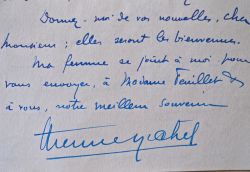 Donnez-moi de vos nouvelles, cher
monsieur ; elles seront les bienvenues.
Ma femme se joint à moi pour
vous envoyer, à Madame Feuillet &
à vous, notre meilleur souvenir